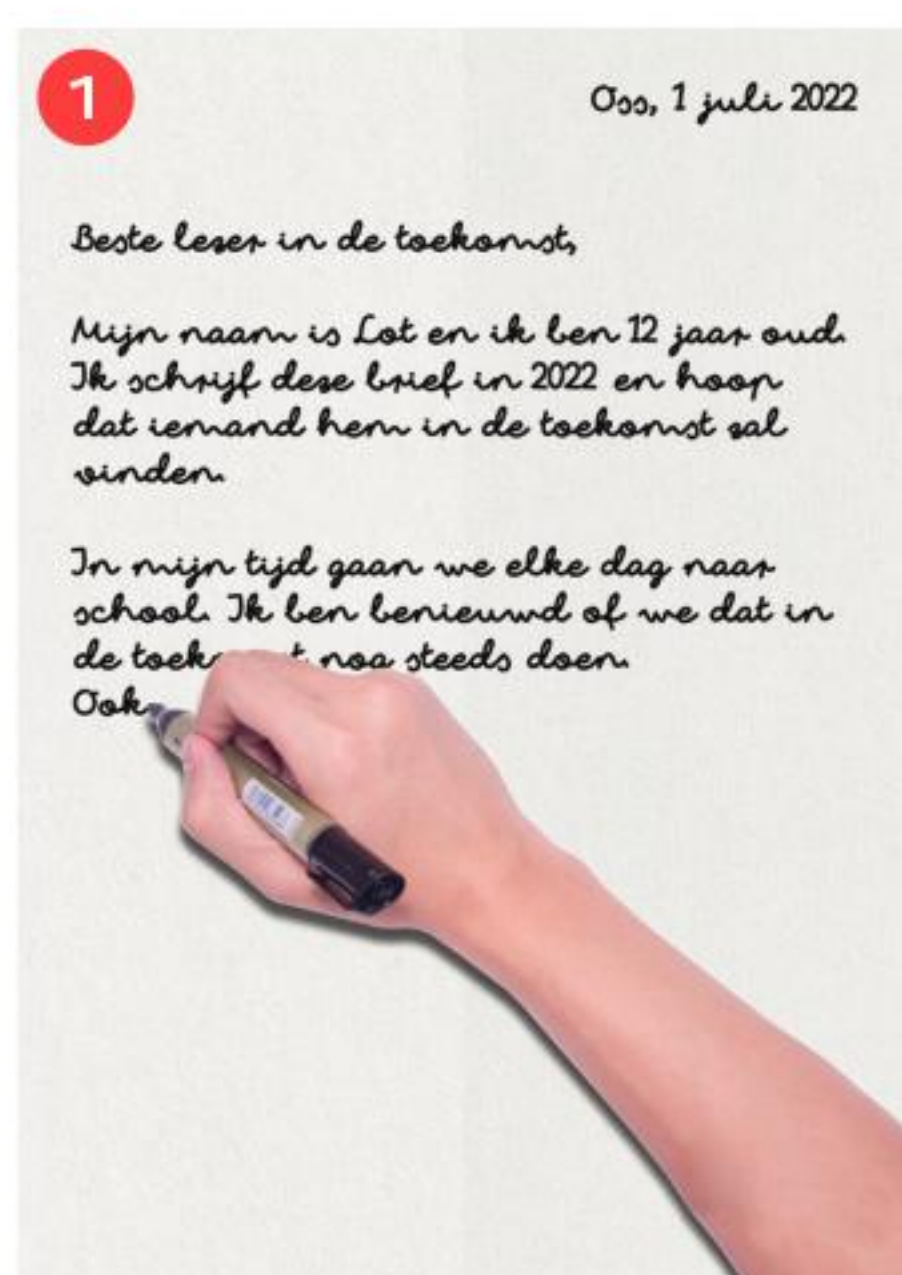 1
Oss, 1 juli 2022
Beste lezer in de toekomst,
Mijn naam is Lot en ik ben 12 jaar oud.
Ik schrijf deze brief in 2022 en hoop
dat iemand hem in de toekomst zal
vinden.
In mijn tijd gaan we elke dag naar
school. Ik ben benieuwd of we dat in
de nog steeds doen.
Ook